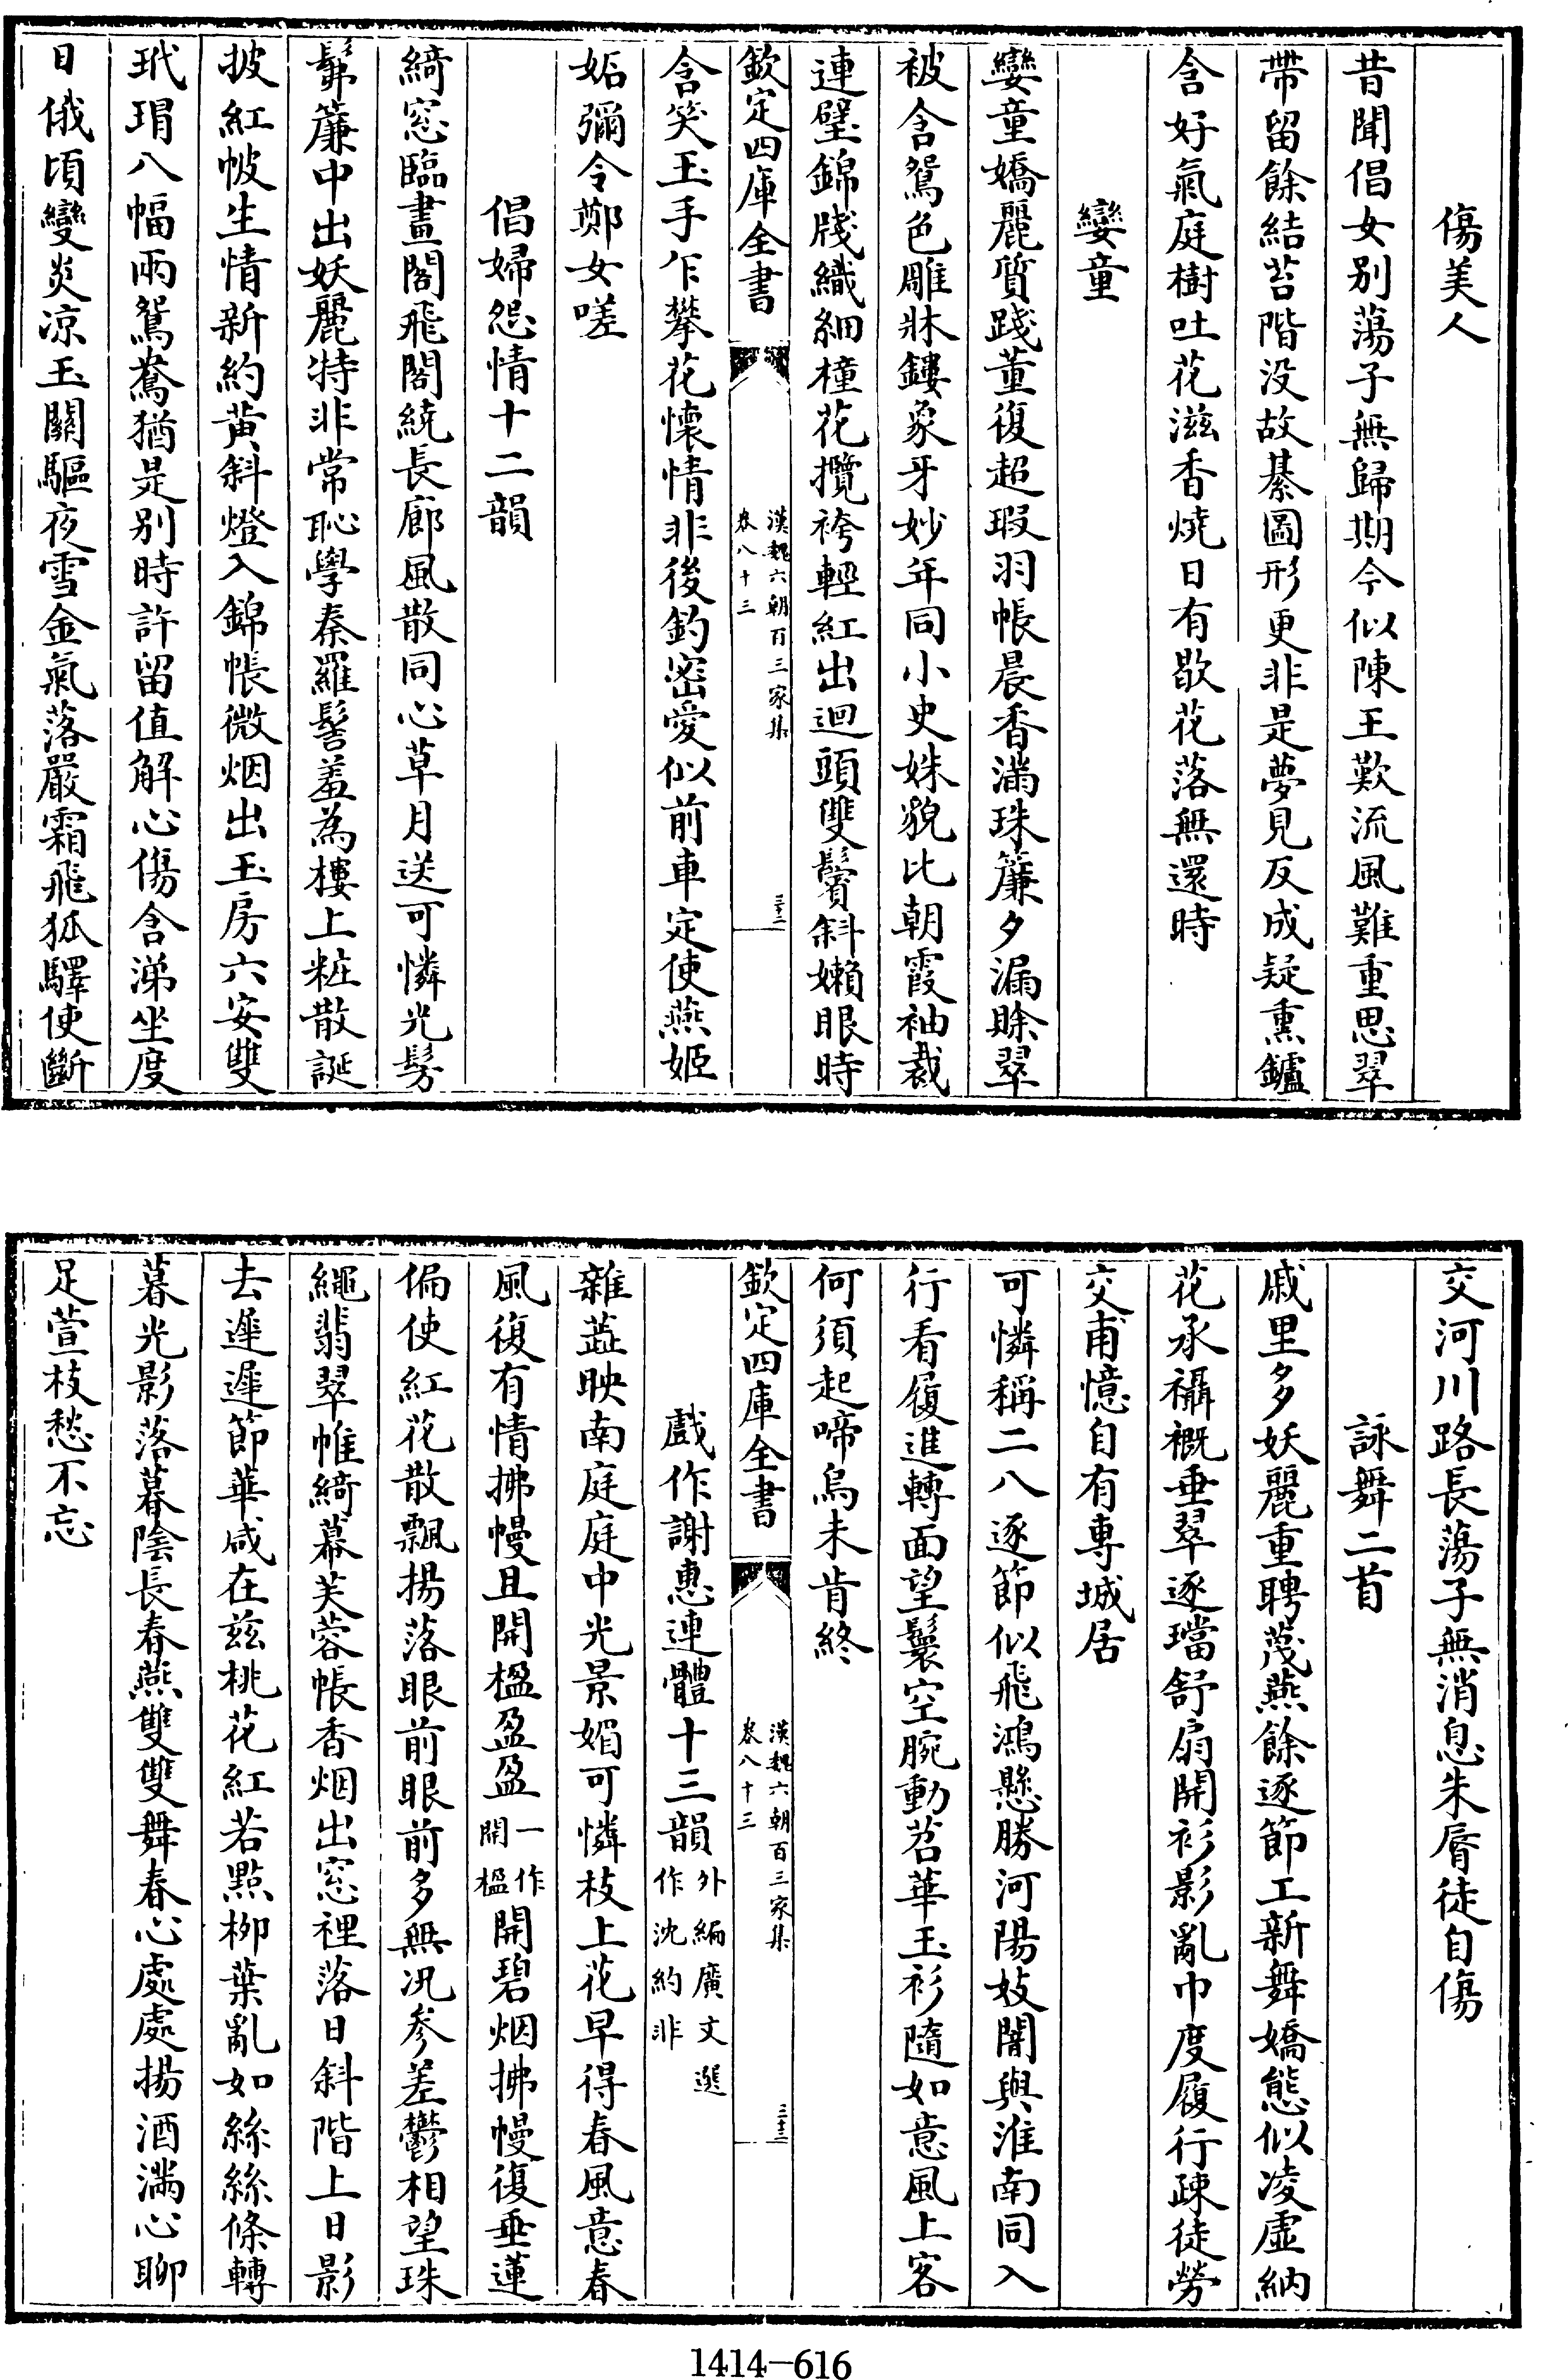 傷美人
昔聞倡女别蕩子無歸期今似陳王歎流風難重思翠
帶留餘結苔階没故綦圖形更非是夢見反成疑熏鑪
含好氣庭樹吐花滋香燒日有歇花落無還時
孌童
孌童嬌麗質踐董復超瑕羽帳晨香滿珠簾夕漏賖翠
被含鴛色雕牀鏤象牙妙年同小史姝貌比朝霞袖裁
連璧錦牋織細橦花攬袴輕紅出迴頭雙鬢斜嬾眼時
欽定四庫全書
漢魏六朝百三家集
卷八十三
三十二
含笑玉手乍攀花懷情非後釣密愛似前車定使燕姬
妬彌令鄭女嗟
倡婦怨情十二韻
綺窓臨畫閣飛閣繞長廊風散同心草月送可憐光髣
髴簾中出妖麗特非常恥學秦羅髻羞為樓上粧散誕
披紅帔生情新約黃斜燈入錦帳微烟出玉房六安雙
玳瑁八幅兩鴛鴦猶是别時許留值解心傷含涕坐度
日俄頃變炎凉玉關驅夜雪金氣落嚴霜飛狐驛使斷
交河川路長蕩子無消息朱脣徒自傷
詠舞二首
戚里多妖麗重聘蔑燕餘逐節工新舞嬌態似凌虚納
花承襵概垂翠逐璫舒扇開衫影亂巾度履行疎徒勞
交甫憶自有專城居
可憐稱二八逐節似飛鴻懸勝河陽妓闇與淮南同入
行看履進轉面望鬟空腕動苕華玉衫隨如意風上客
何須起啼烏未肯終
欽定四庫全書
漢魏六朝百三家集
卷八十三
三十三
戲作謝惠連體十三韻外編廣文選作沈約非
雜蘂映南庭庭中光景媚可憐枝上花早得春風意春
風復有情拂幔且開楹盈盈一作開楹開碧烟拂幔復垂蓮
偏使紅花散飄揚落眼前眼前多無况参差鬱相望珠
繩翡翠帷綺幕芙蓉帳香烟出窓裡落日斜階上日影
去遲遲節華咸在兹桃花紅若點柳葉亂如絲絲條轉
暮光影落暮隂長春燕雙雙舞春心處處揚酒滿心聊
足萱枝愁不忘
1414—616